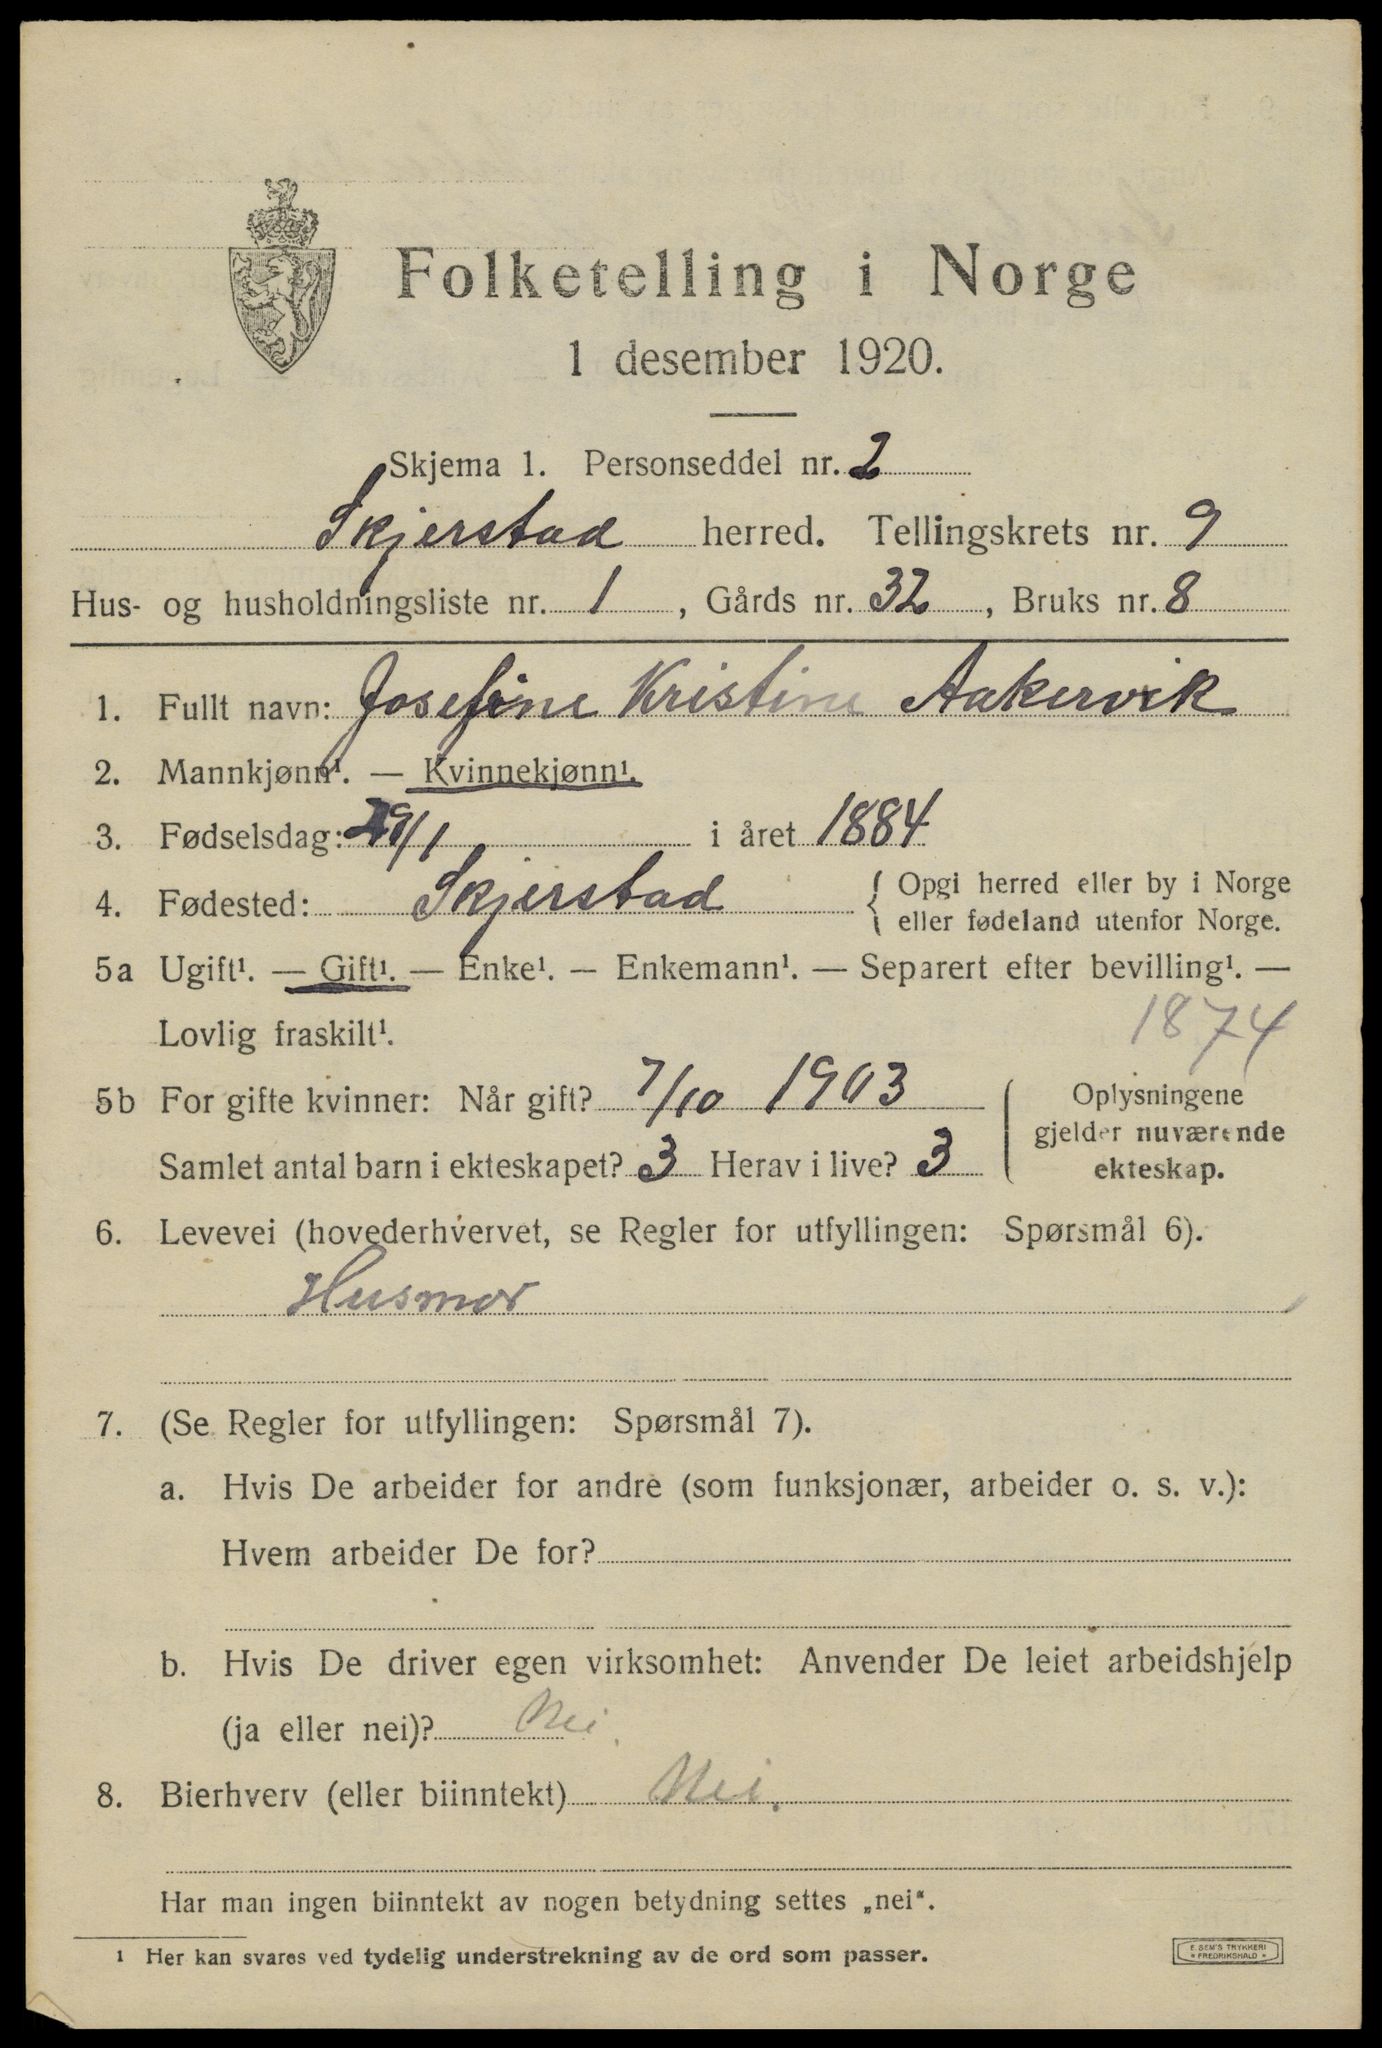 Folketelling i Norge
1 desember 1920.
Skjema 1. Personseddel nr. 2
Skjerstad herred. Tellingskrets nr. 9
Hus- og husholdningsliste nr. 1, Gårds nr. 32, Bruks nr. 8
1. Fullt navn: Josefine Kristine Aakervik
2. Mannkjønn¹. — Kvinnekjønn¹.
3. Fødselsdag: 29/1 i året 1884
4. Fødested: Skjerstad { Opgi herred eller by i Norge
eller fødeland utenfor Norge.
5a Ugift¹. — Gift¹. — Enke¹. — Enkemann¹. — Separert efter bevilling¹. —
Lovlig fraskilt¹.
1874
5b For gifte kvinner: Når gift? 7/10 1903
Samlet antal barn i ekteskapet? 3 Herav i live? 3
Oplysningene
gjelder nuværende
ekteskap.
6. Levevei (hovederhvervet, se Regler for utfyllingen: Spørsmål 6).
Husmor
7. (Se Regler for utfyllingen: Spørsmål 7).
a. Hvis De arbeider for andre (som funksjonær, arbeider o. s. v.):
Hvem arbeider De for?
b. Hvis De driver egen virksomhet: Anvender De leiet arbeidshjelp
(ja eller nei)? Nei.
8. Bierhverv (eller biinntekt) Nei.
Har man ingen biinntekt av nogen betydning settes „nei“.
¹ Her kan svares ved tydelig understrekning av de ord som passer.
E. SEM'S TRYKKERI
* FREDRIKSHALD *